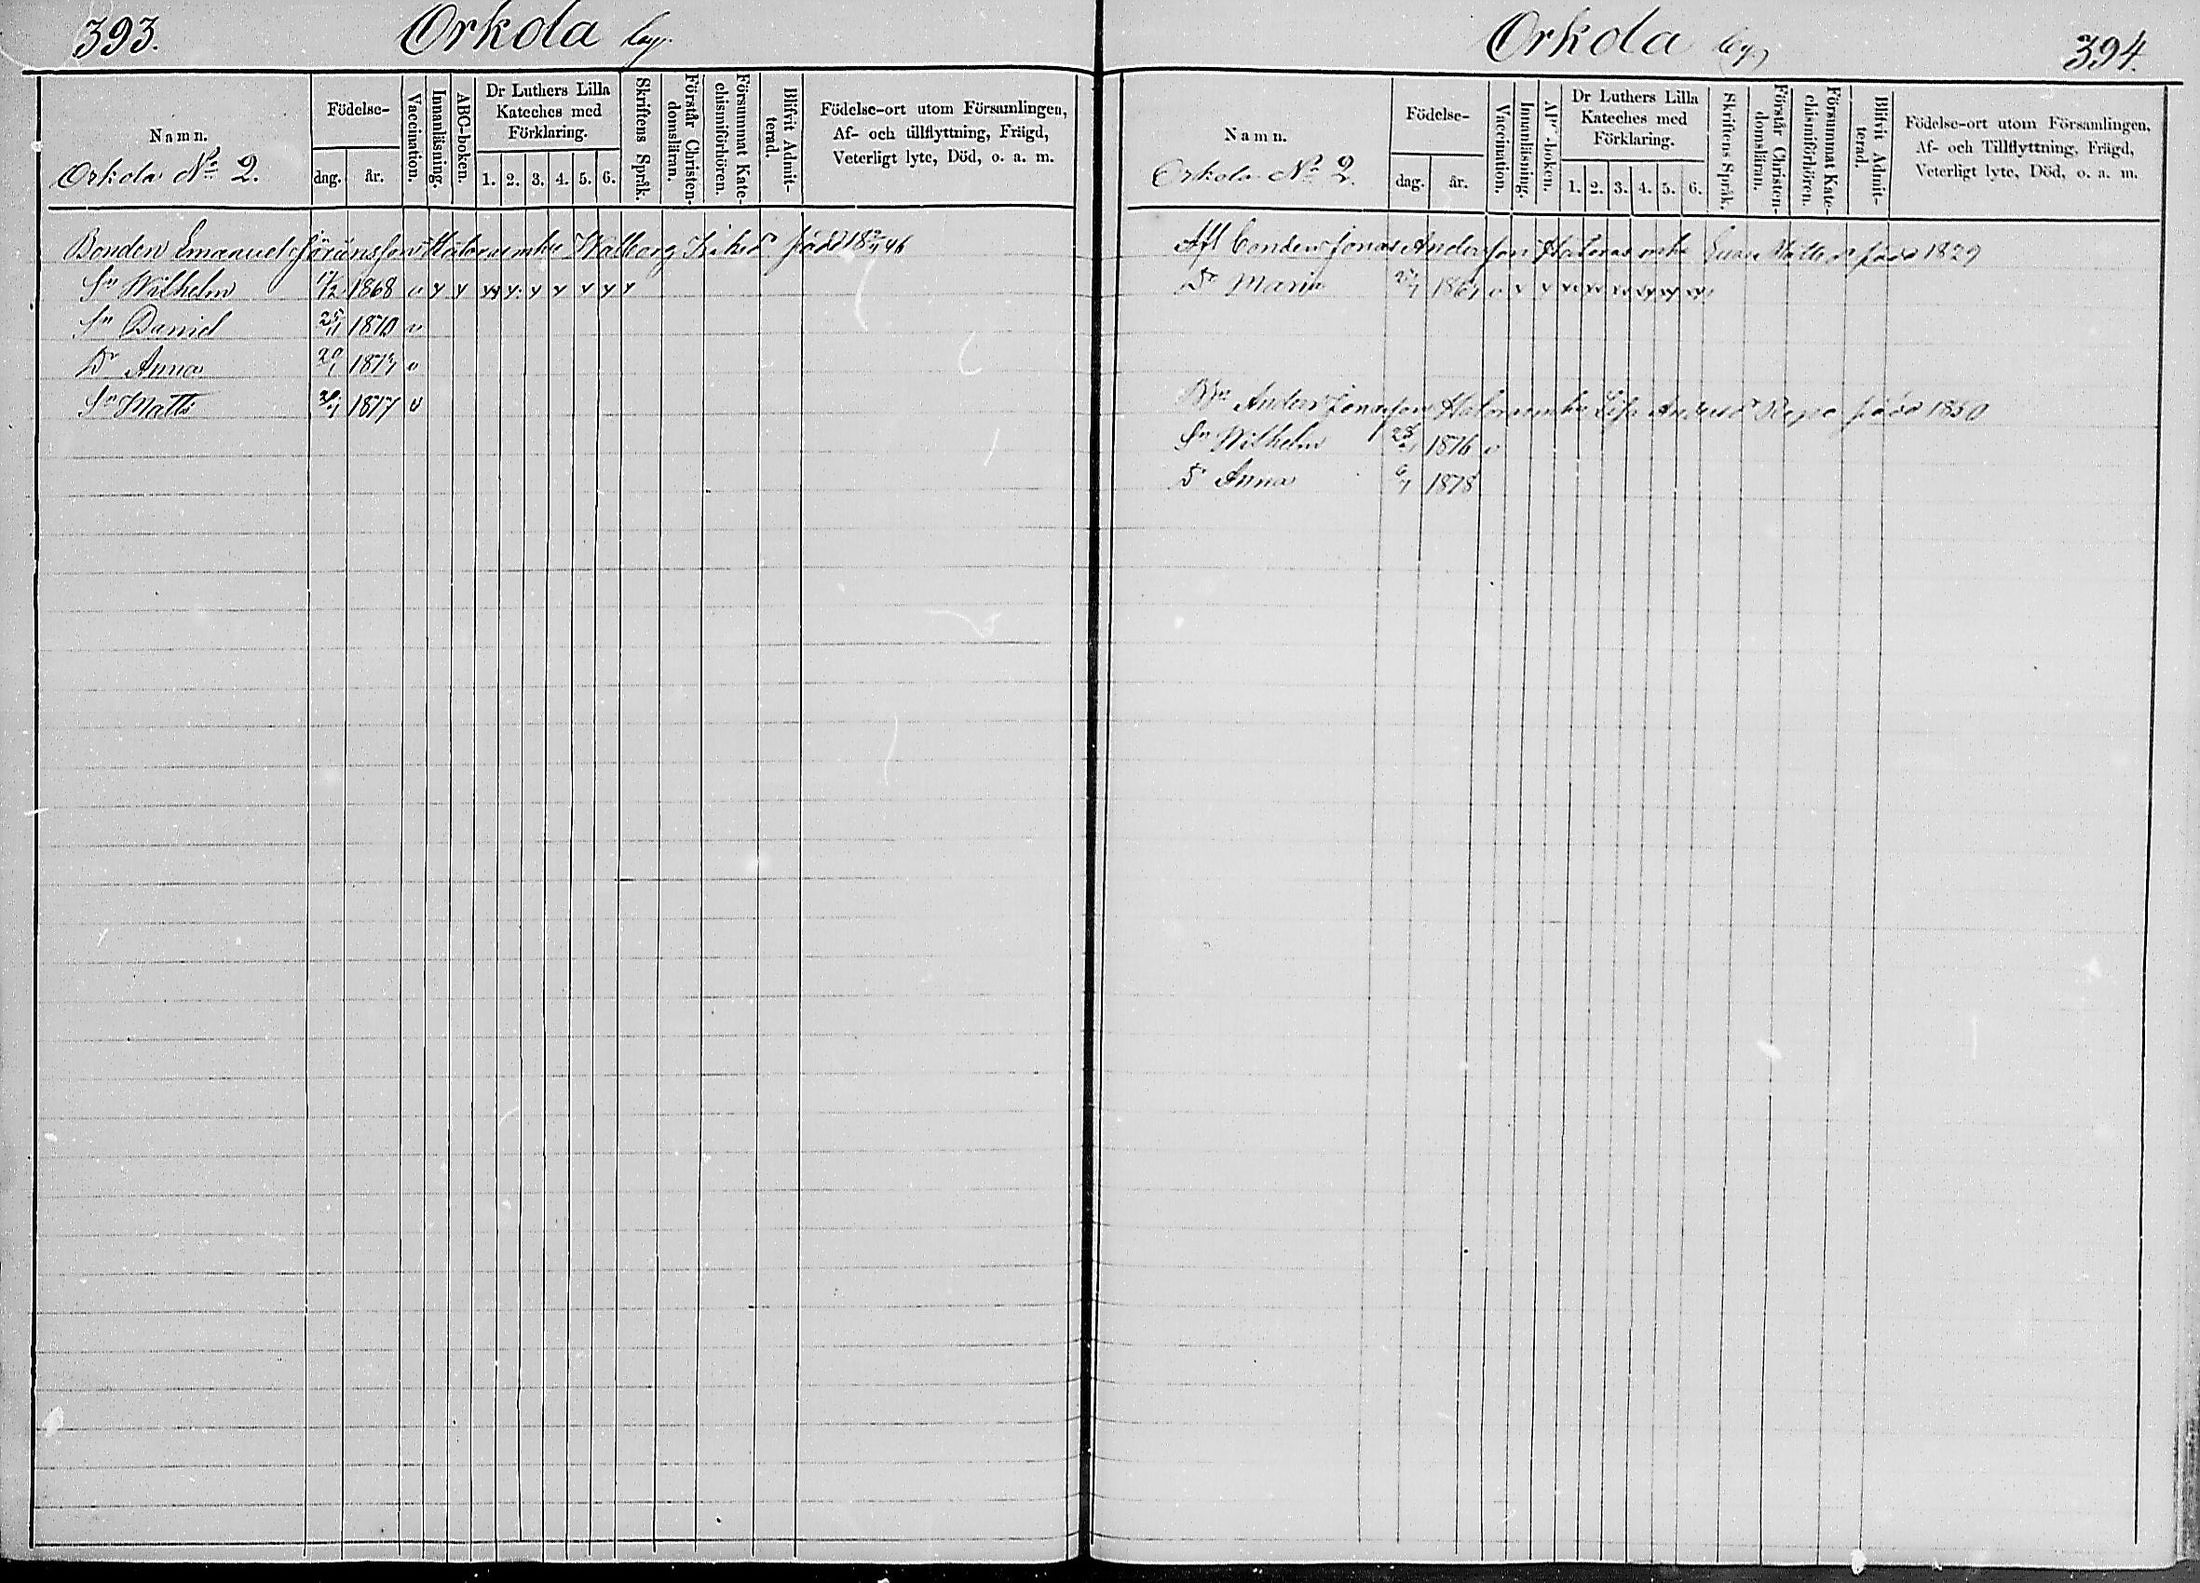 393.
Orkola by.
Namn.
Orkola No 2.
Födelse-
dag.
år.
Vaccination.
Innanläsning.
ABC-boken.
Dr Luthers Lilla
Kateches med
Förklaring.
1. 2. 3. 4. 5. 6.
Skriftens Språk.
Förstår Christen-
domsläran.
Försummat Kate-
chismiförhören.
Blifvit Admit-
terad.
Födelse-ort utom Församlingen,
Af- och tillflyttning, Frägd,
Veterligt lyte, Död, o. a. m.
Bonden Emanuel Göransson Walborg född
Sn Wilhelm 1868
Sn Daniel 1870
Dr Anna
Sn Matts 1877
Orkola by
394.
Namn.
Orkola No 2.
Födelse-
dag.
år.
Vaccination.
Innanläsning.
ABC-boken.
Dr Luthers Lilla
Kateches med
Förklaring.
1. 2. 3. 4. 5. 6.
Skriftens Språk.
Förstår Christen-
domsläran.
Försummat Kate-
chismiförhören.
Blifvit Admit-
terad.
Födelse-ort utom Församlingen,
Af- och Tillflyttning, Frägd,
Veterligt lyte, Död, o. a. m.
Afl bonden Jonas Andersson född 1829
Dr Maria
Anders Jonasson född 1850
Sn Wilhelm 1876
Dr Anna 6/1 1878